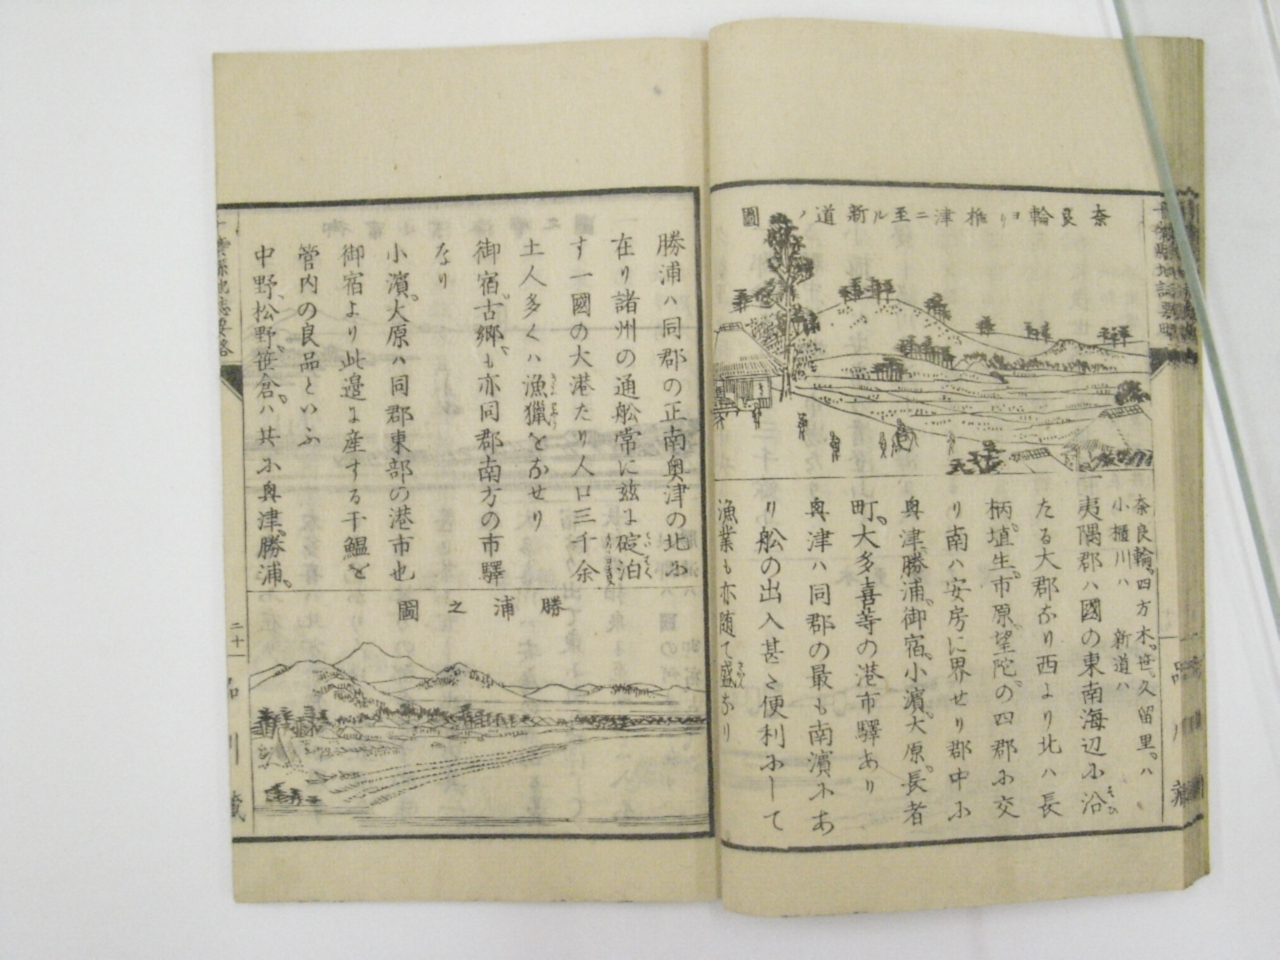 奈良輪ヨリ椎津ニ至ル新道ノ圖
奈良輪。四方木。笹。久留里。ハ
小櫃川ハ　新道ハ
夷隅郡ハ國の東南海辺ふ沿
たる大郡なり西より北ハ長
柄。埴生。市原。望陀。の四郡ふ交
り南ハ安房に界せり郡中ふ
奥津。勝浦。御宿。小濱。大原。長者
町。大多喜等の港市驛あり
奥津ハ同郡の最も南濱ふあ
り舩の出入甚た便利ふして
漁業も亦随て盛なり
勝浦ハ同郡の正南奥津の北ふ
在り諸州の通舩常に茲よ碇泊
す一國の大港たり人口三千余
土人多くハ漁獵をなせり
御宿。古郷。も亦同郡南方の市驛
なり
小濱。大原ハ同郡東部の港市也
御宿より此邊よ産する干鰮を
管内の良品といふ
中野。松野。笹倉。ハ共ふ奥津。勝浦。
勝浦之圖
二十